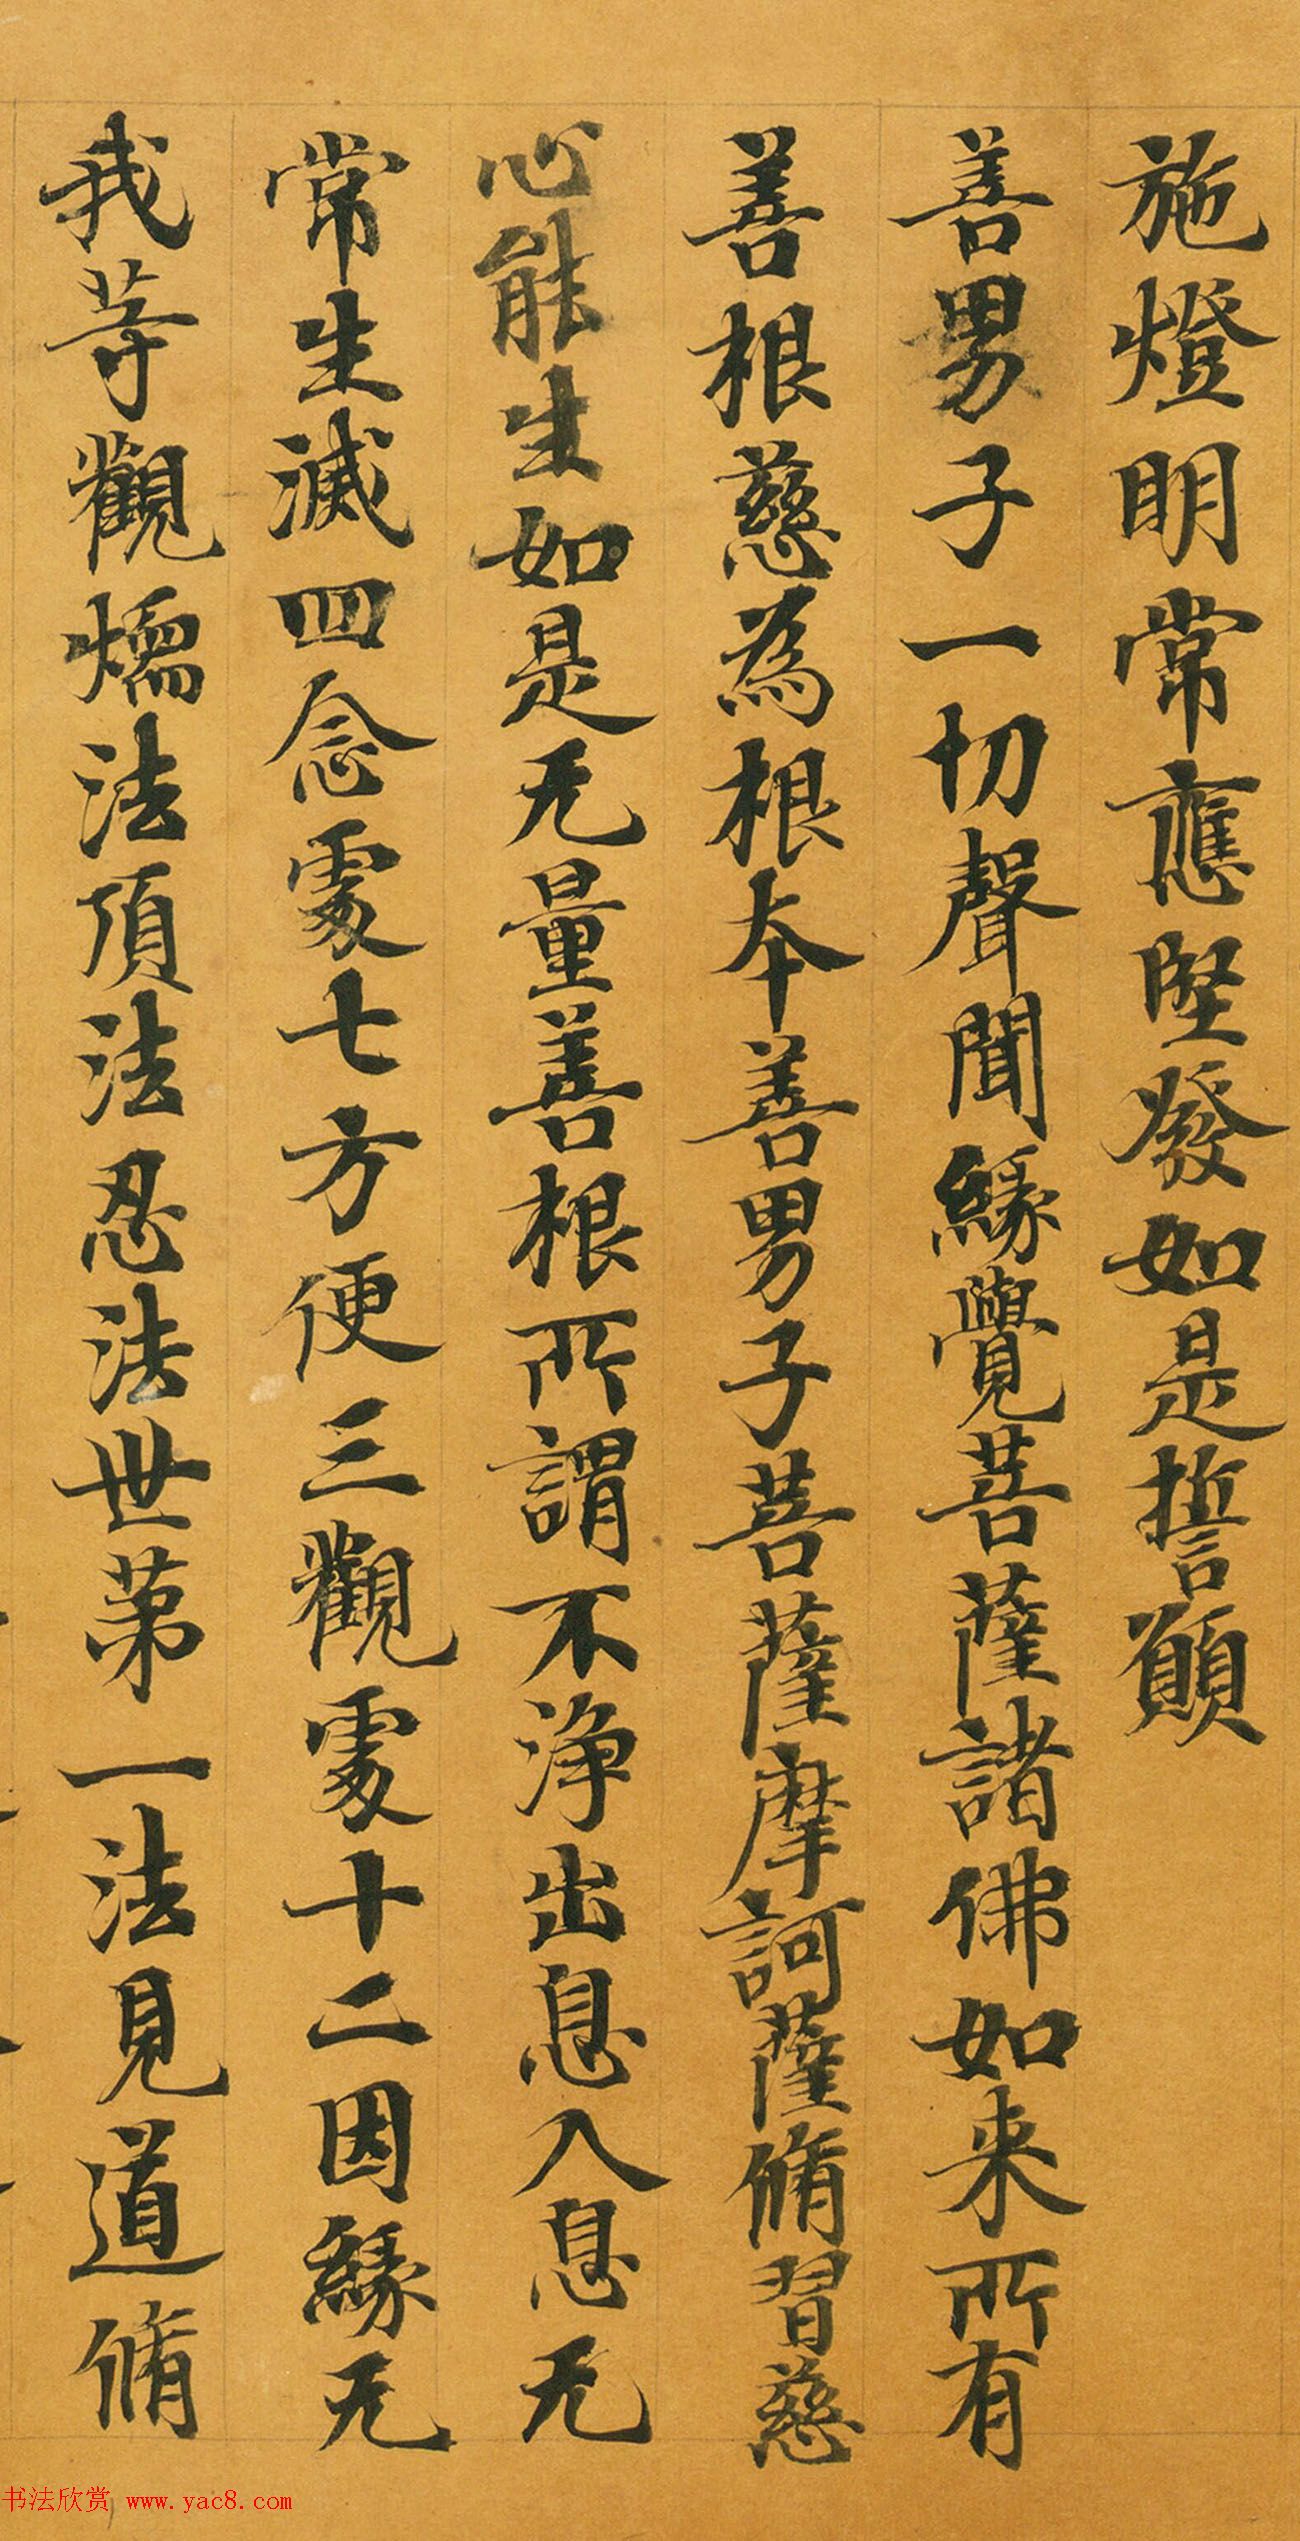 施燈明常應堅發如是誓願
善男子一切聲聞緣覺菩薩諸佛如来所有
善根慈為根本善男子菩薩摩訶薩脩習慈
心能生如是无量善根所謂不淨出息入息无
常生滅四念處七方便三觀處十二因緣无
我等觀煗法頂法忍法世第一法見道脩
书法欣赏 www.yac8.com